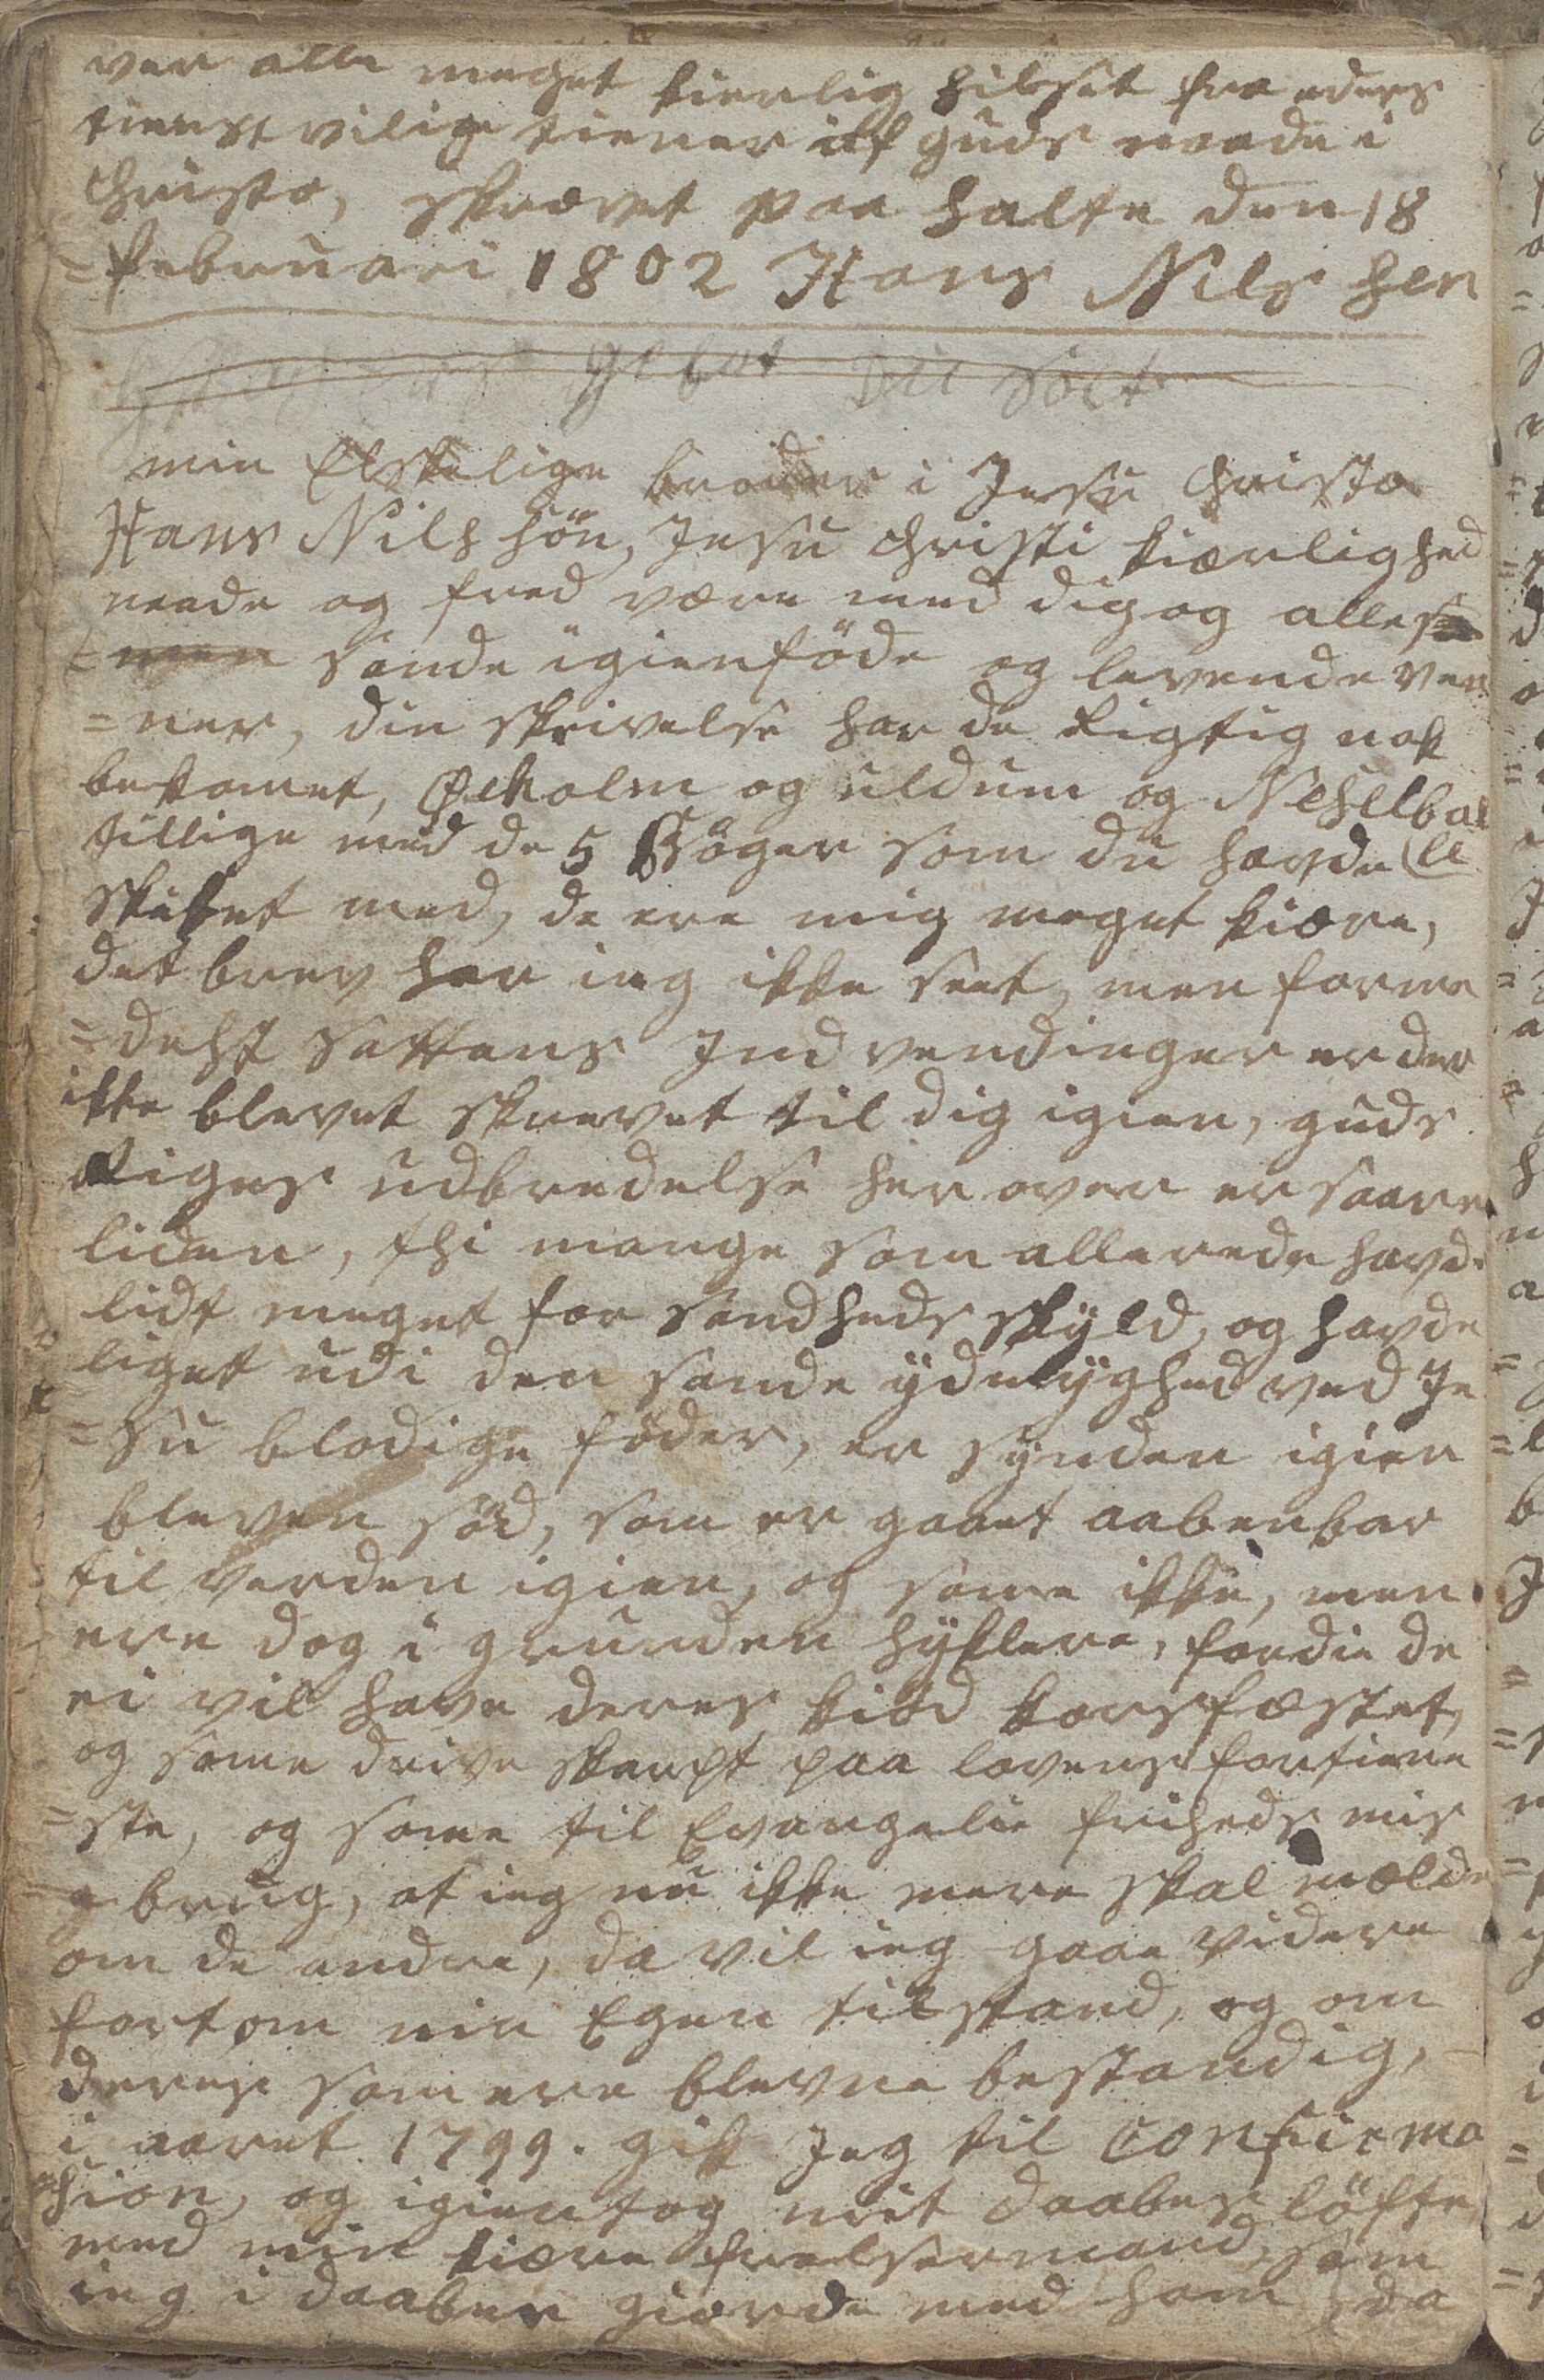 ver alle meget kierlig hilset fra eders
tienst vilige tiener af guds naade i
Christo, skrævet paa halte den 18
=februari 1802 Hans Nils hen
min Elskelige broder i Jesu Christo
Hans Nils hön, Jesu Christi kiærlighed
naade og fred være med dig og alle sa
=men sande igienföde og levende ven
=ner, din skrivelse har de Rigtig nok
bekomet, Ørholm og uldum og
tillige med de 5 Böger som du havde
skibet med, de ere mig meget kiære,
det brev har ieg ikke seet, men forme
=delst Sattans Indvendinger er der
ikke blevet skrevet til dig igien, guds
Riges udbredelse her over er saare
liden, thi mange som allerede havde
lidt meget for sandheds skÿld, og havde
liget udi den sande ÿdmÿghed ved Je
=su blodige föder, er sÿnden igien
bleven söd, som er gaaet aabenbar
til verden igien, og some ikke, men
ere dog i grunden hÿklere, fordie de
ei vil have deres kiöd korsfæstet,
og some drive skarpt paa lovens fortiene
=ste, og some til Evangelie friheds mis
=brug, at ieg nu ikke mere skal mælde
om de andre, da vil ieg gaae videre
fort om min Egen tilstand, og om
deres som ere blevne bestandig,
i aaret 1799. gik Jeg til Confirma
=hion, og igientog mit daabes löfte
med min kiære frelsermand, som
ieg i daaben giorde med ham, da